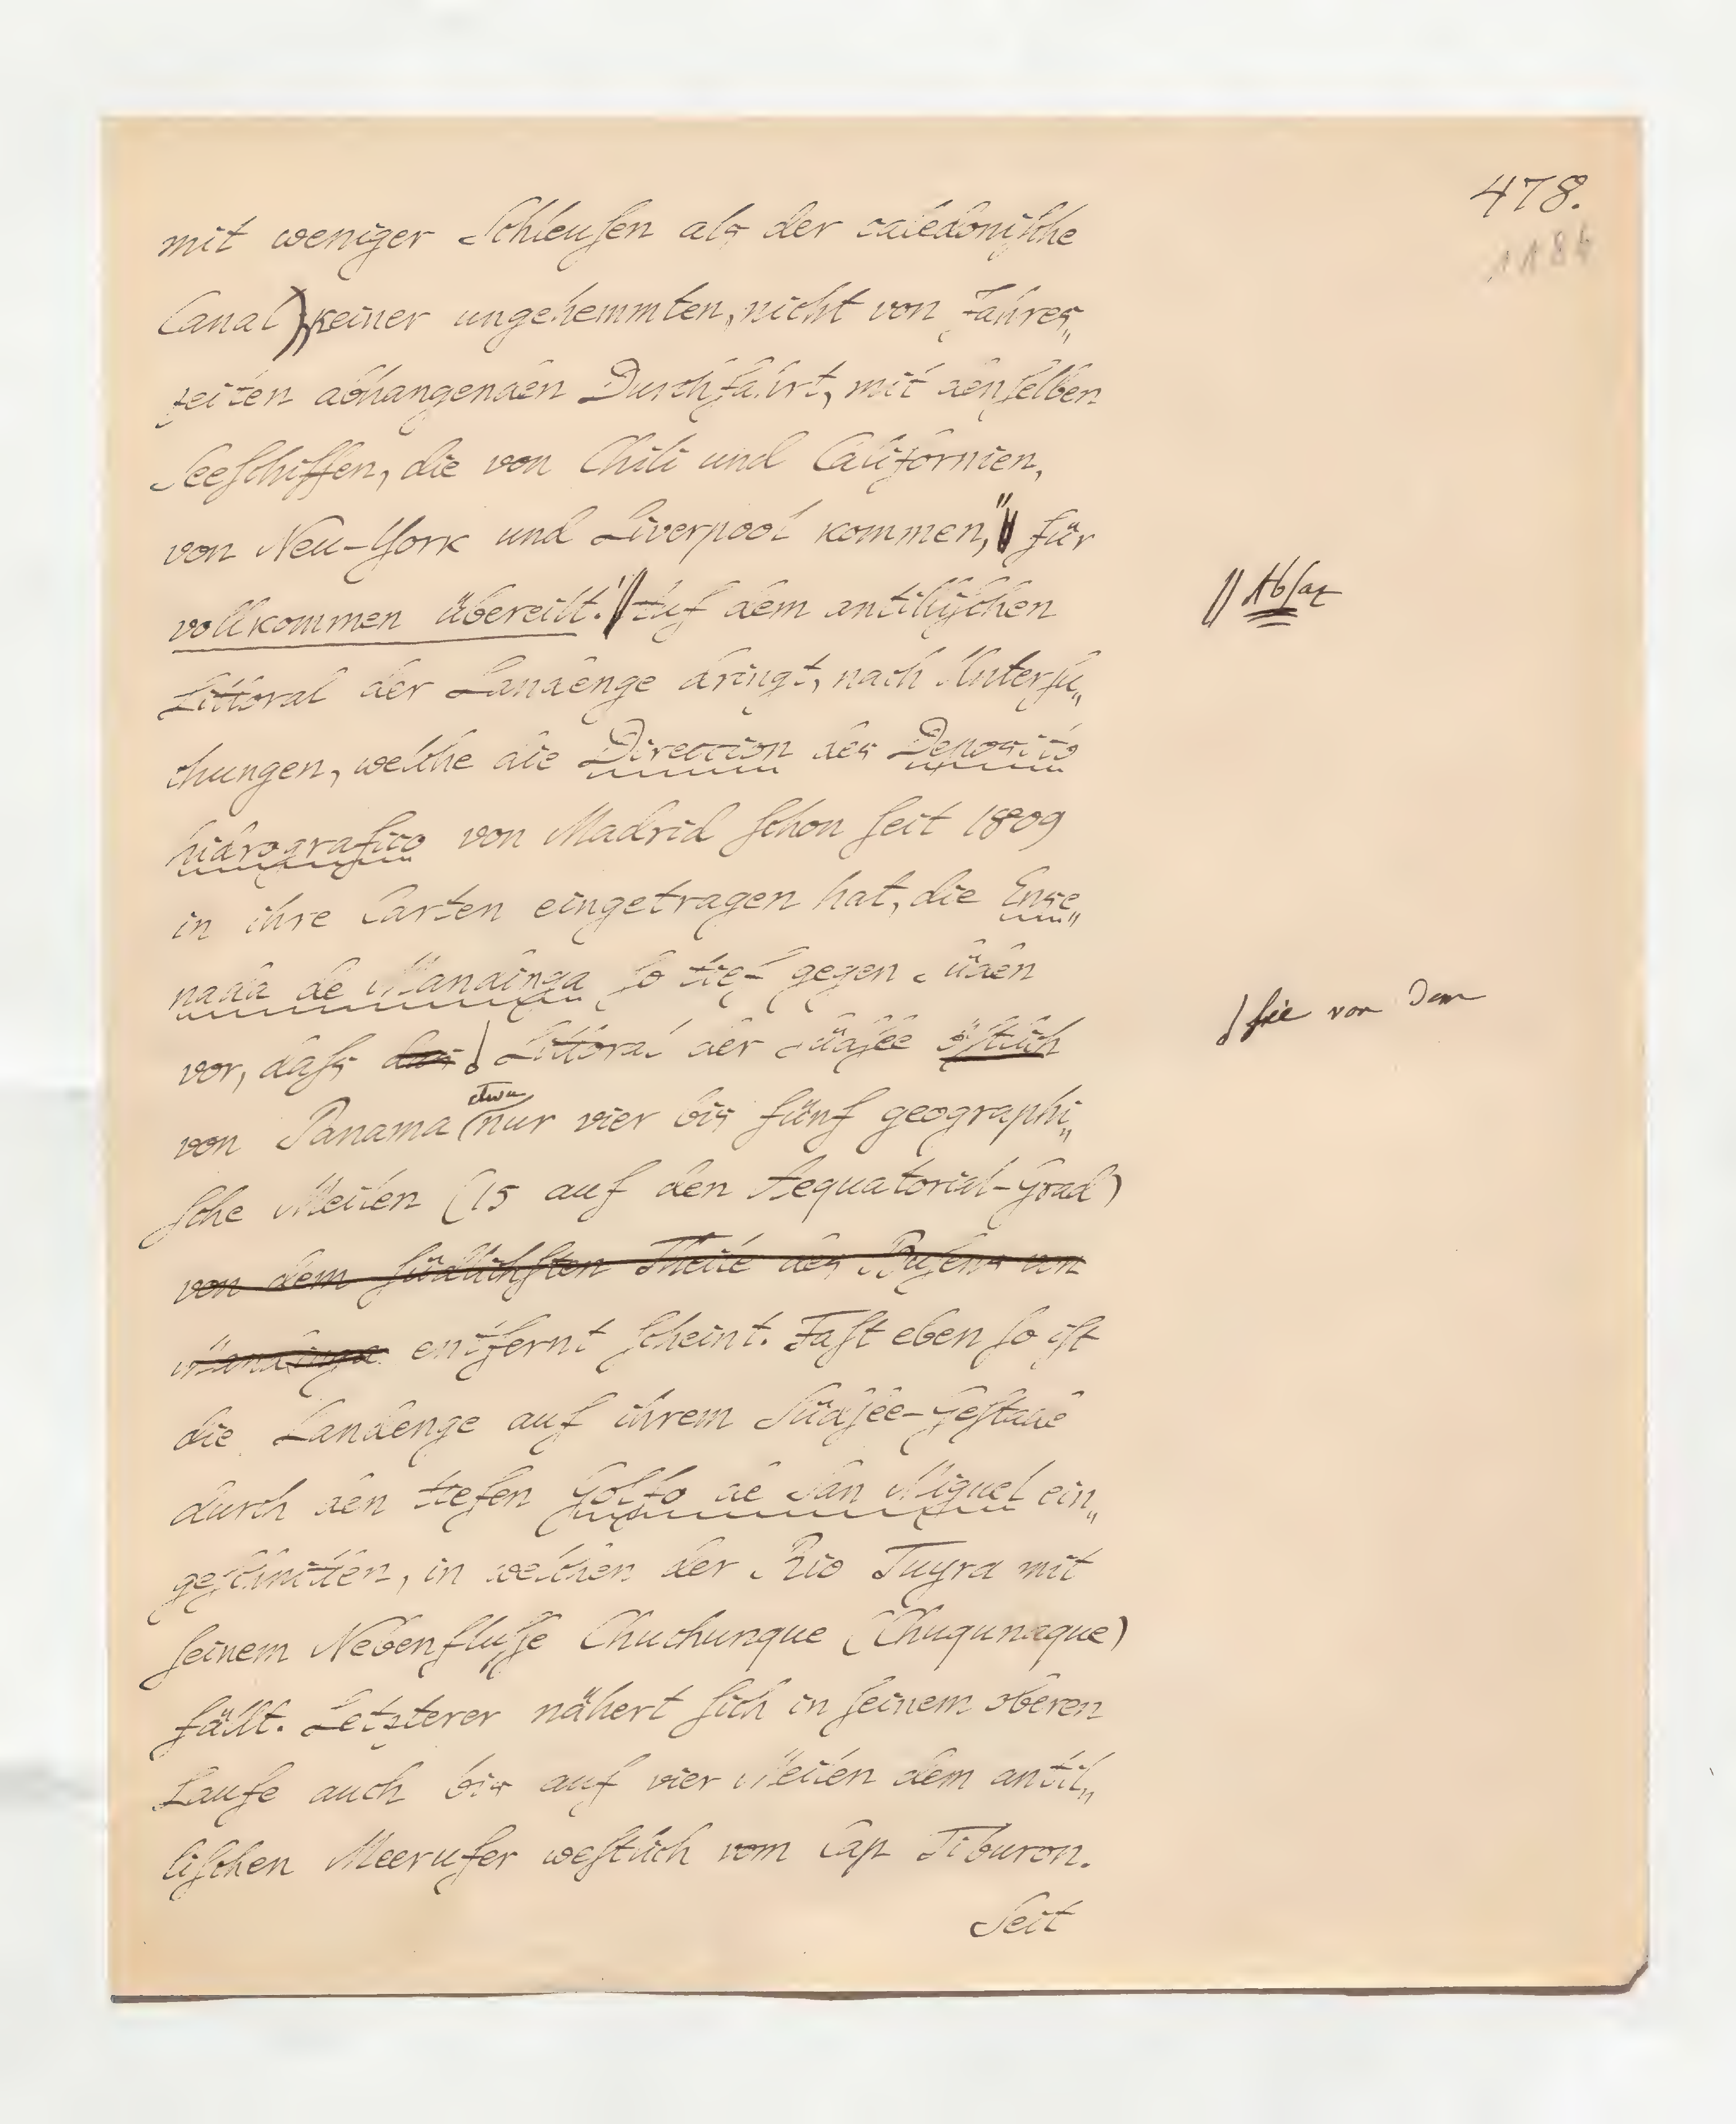 478.
1184
mit weniger Schleusen als der caledonische
Canal), keiner ungehemmten, nicht von Jahres„
zeiten abhangenden Durchfahrt, mit denselben
Seeschiffen, die von Chili und Californien,
von Neu-York und Liverpool kommen," für
vollkommen übereilt." Auf dem antillischen
// Absaz
Littoral der Landenge dringt, nach Untersu„
chungen, welche die Direccion des Deposito
hidrografico von Madrid schon seit 1809
in ihre Carten eingetragen hat, die Ense„
nada de Mandinga so tief gegen Süden
vor, dass das Littoral der Südsee östlich
sie von dem
etwa
von Panama nur vier bis fünf geographi„
sche Meilen (15 auf den Aequatorial-Grad)
von dem südlichsten Theile des Busens von
Mandinga entfernt scheint. Fast eben so ist
die Landenge auf ihrem Südsee-Gestade
durch den tiefen Golfo de San Miguel ein„
geschnitten, in welchen der Rio Tuyra mit
seinem Nebenflusse Chuchunque (Chuqunaque)
fällt. Letzterer nähert sich in seinem oberen
Laufe auch bis auf vier Meilen dem antil„
lischen Meerufer westlich vom Cap Tiburon.
Seit